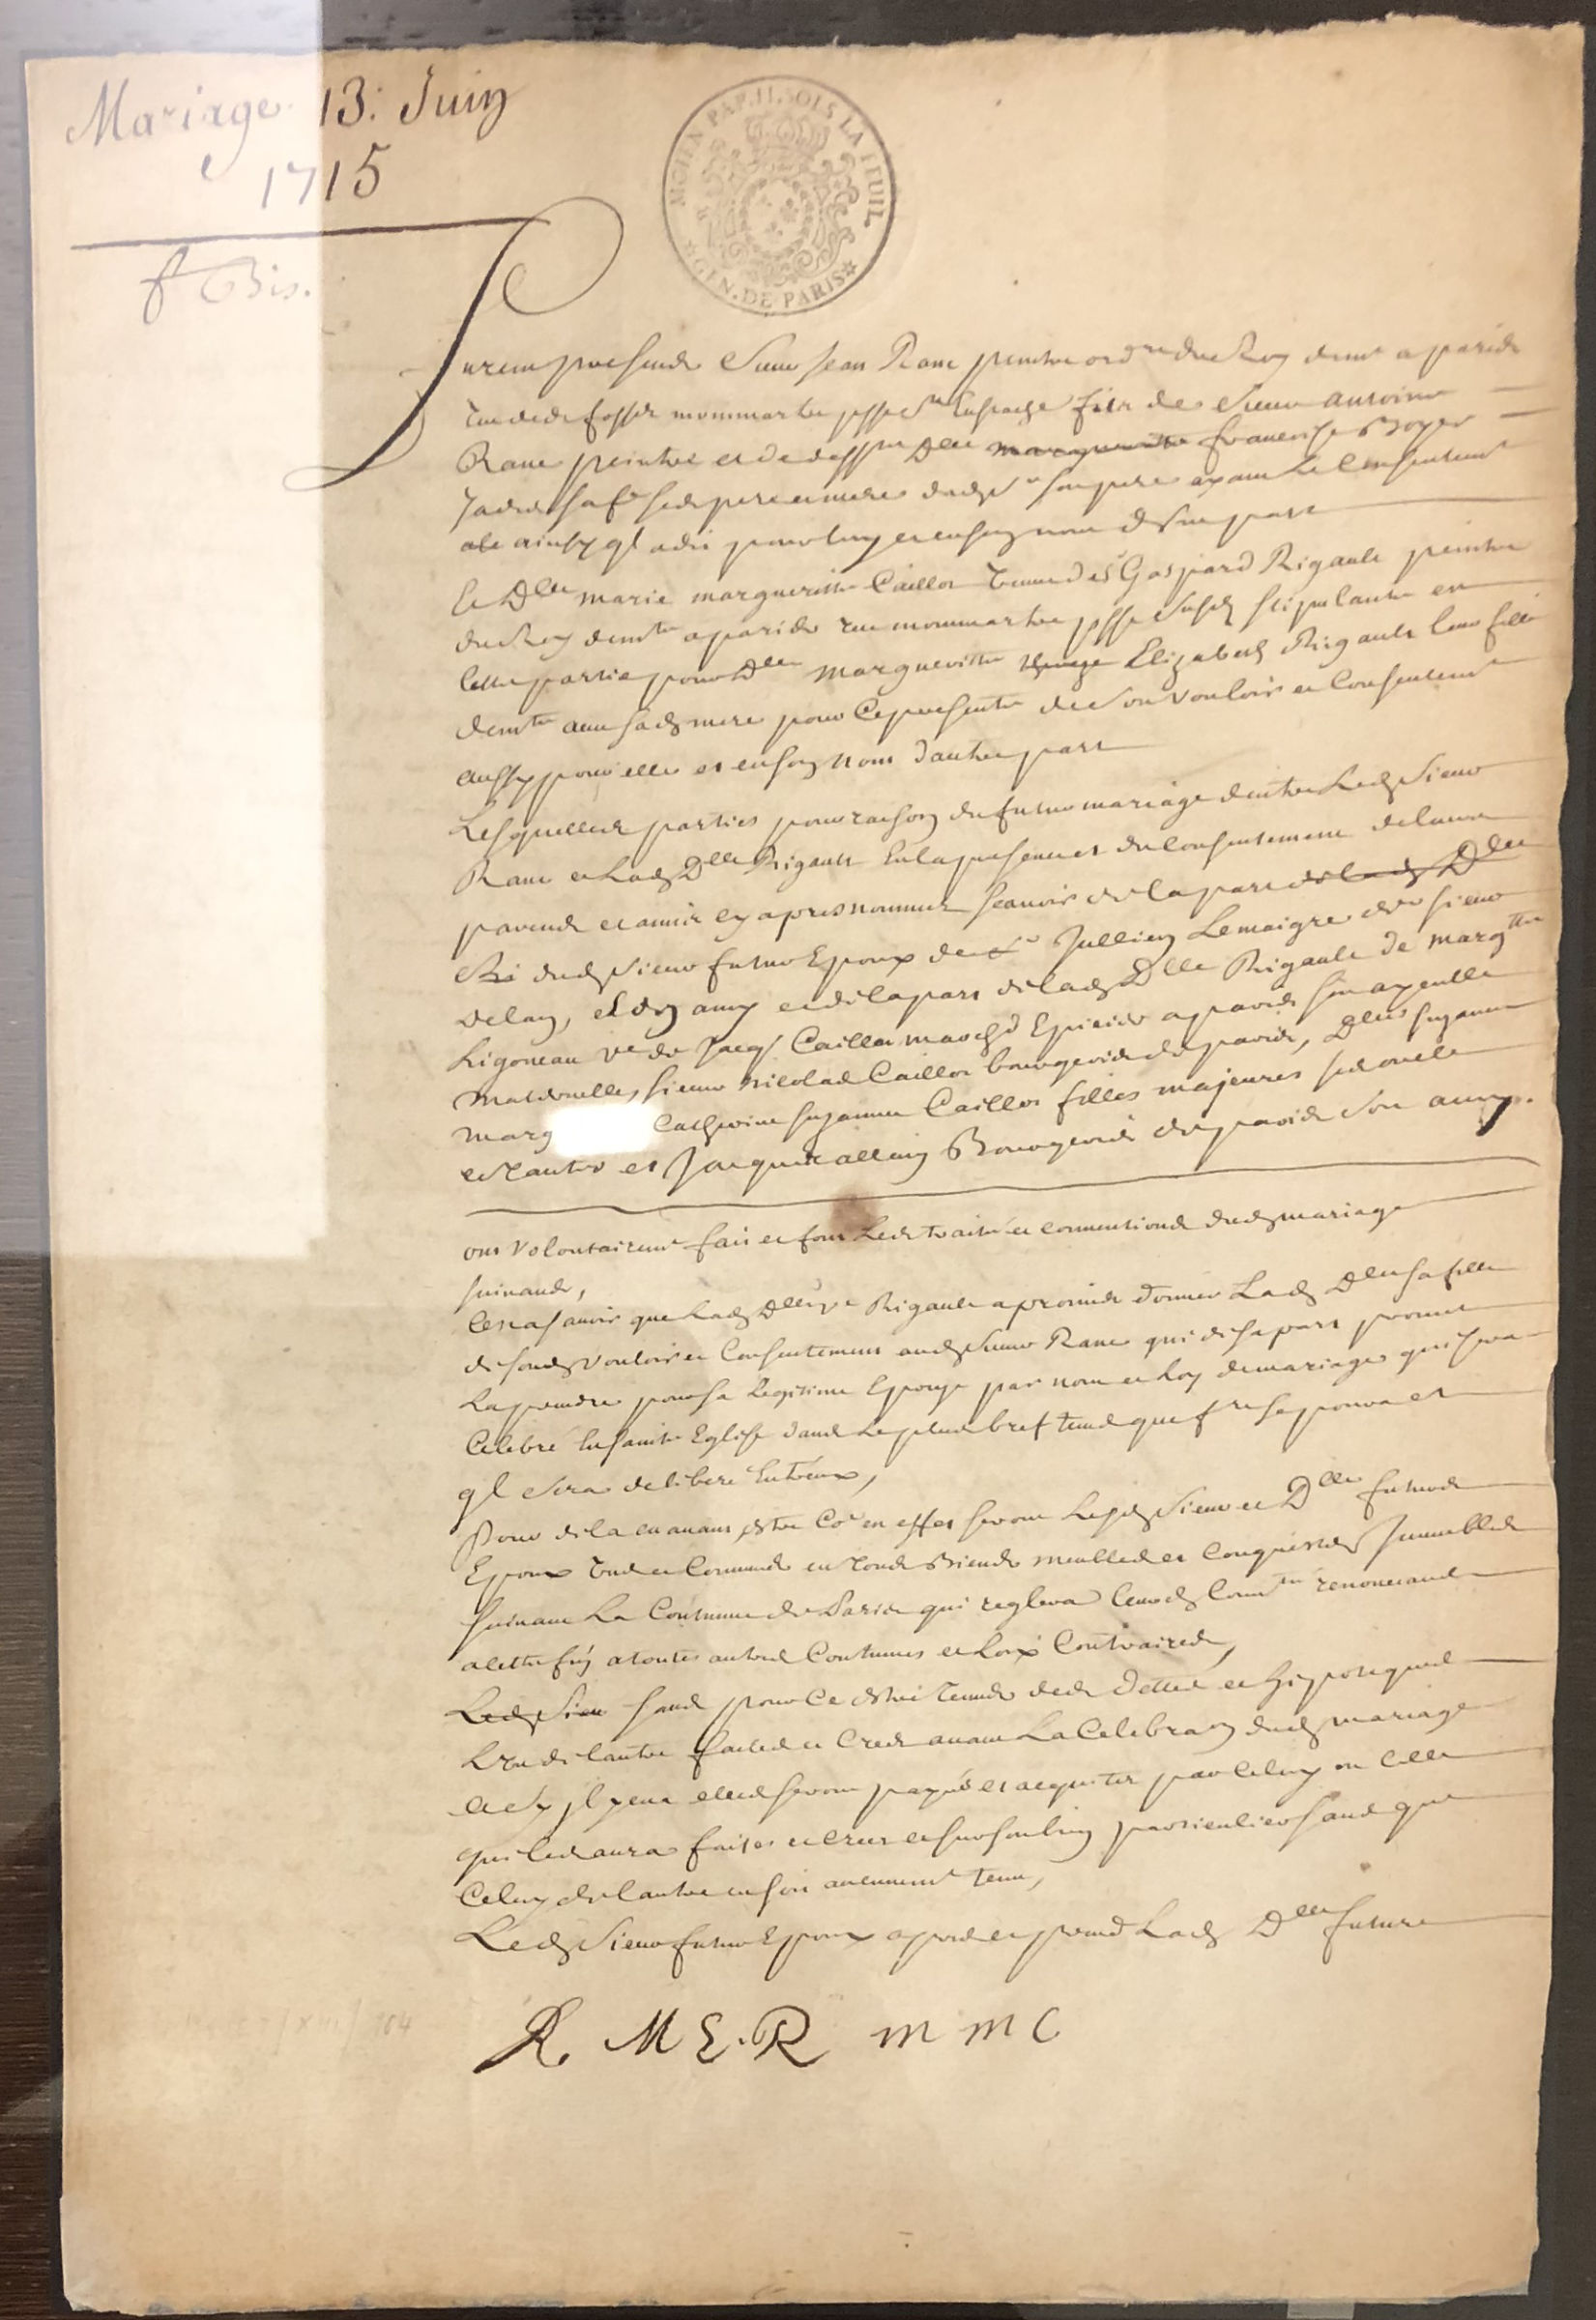 Mariage 13. Juin
1715
Bis.
MOIEN PAP. II. SOLS LA FEUIL
GEN. DE PARIS
Furem presends Sieur Jean Ranc peintre ordre du Roy demt a paris
rue des fossez montmartre psse St Eustache fils de Sieur antoine
Ranc peintre et de deffte Dlle margueritte francoise Boyer
Jadis sa fe ses pere et mere dudt Sr son pere ayant le consentemt
ainsy ql a dit pour luy et en son nom d'une part
Et Dlle marie margueritte Caillot veuve de Sr Gaspard Rigault peintre
du Roy demte a paris rue montmartre psse susd stipulante en
cette partie pour Dlle margueritte Elizabeth Rigault leur fille
demte avec sad mere pour ce presente de son vouloir et consentemt
aussy pour elle et en son nom d'autre part
Lesquelles parties pour raison du futur mariage d'entre Led Sieur
Ranc et Lad Dlle Rigault En la presence et du consentement de leurs
parends et amis cy apres nommez scavoir de la part de lad Dlle
dud Sieur futur Epoux de Sr Jullien Lemaigre Sieur
Delay, son amy et de la part de lad Dlle Rigault de margtte
Ligoneau ve de Jacq Caillot marchd Epicier a paris son ayeulle
maternelle, sieur nicolas Caillot bourgeois de paris, Dlles suzanne
marg Catherine suzanne Caillot filles majeures ses oncle
et tantes et Jacques allain Bourgeois de paris son amy.
ont volontairemt fait et font Les traité et conventions dud mariage
suivands,
Cest a scavoir que Lad Dlle ve Rigault a promis donner Lad Dlle sa fille
de sond vouloir et Consentement aud Sieur Ranc qui de sa part promet
La prendre pour sa Legitime Epouse par nom et Loy de mariage qui sera
Celebré En sainte Eglise dans Le plus bref temps que f re se pourra et
ql sera deliberé Entr'eux,
Pour de la en avant estre Co en effet seront Lesd Sieur et Dlle futurs
Epoux Uns et Communs en tous Biens meubles et Conquests Immeubles
suivant La Coutume de Paris qui reglera leurd Comté renonceands
a cette fin a toutes autres Coutumes et Loix Contraires,
Led Sieur sans pour Ce estre tenus des dettes et hipoteques
L'un de l'autre faites et Créés avant La Celebraon dud mariage
et s'y Jl y en a elles seront payés et acquitez par Celuy ou Celle
qui les aura faites et creez et sur son bien particulier sans que
Celuy de l'autre en soit aucunemt tenu,
Led Sieur futur Epoux a pris et prend Lad Dlle future
R. M E. R m m C